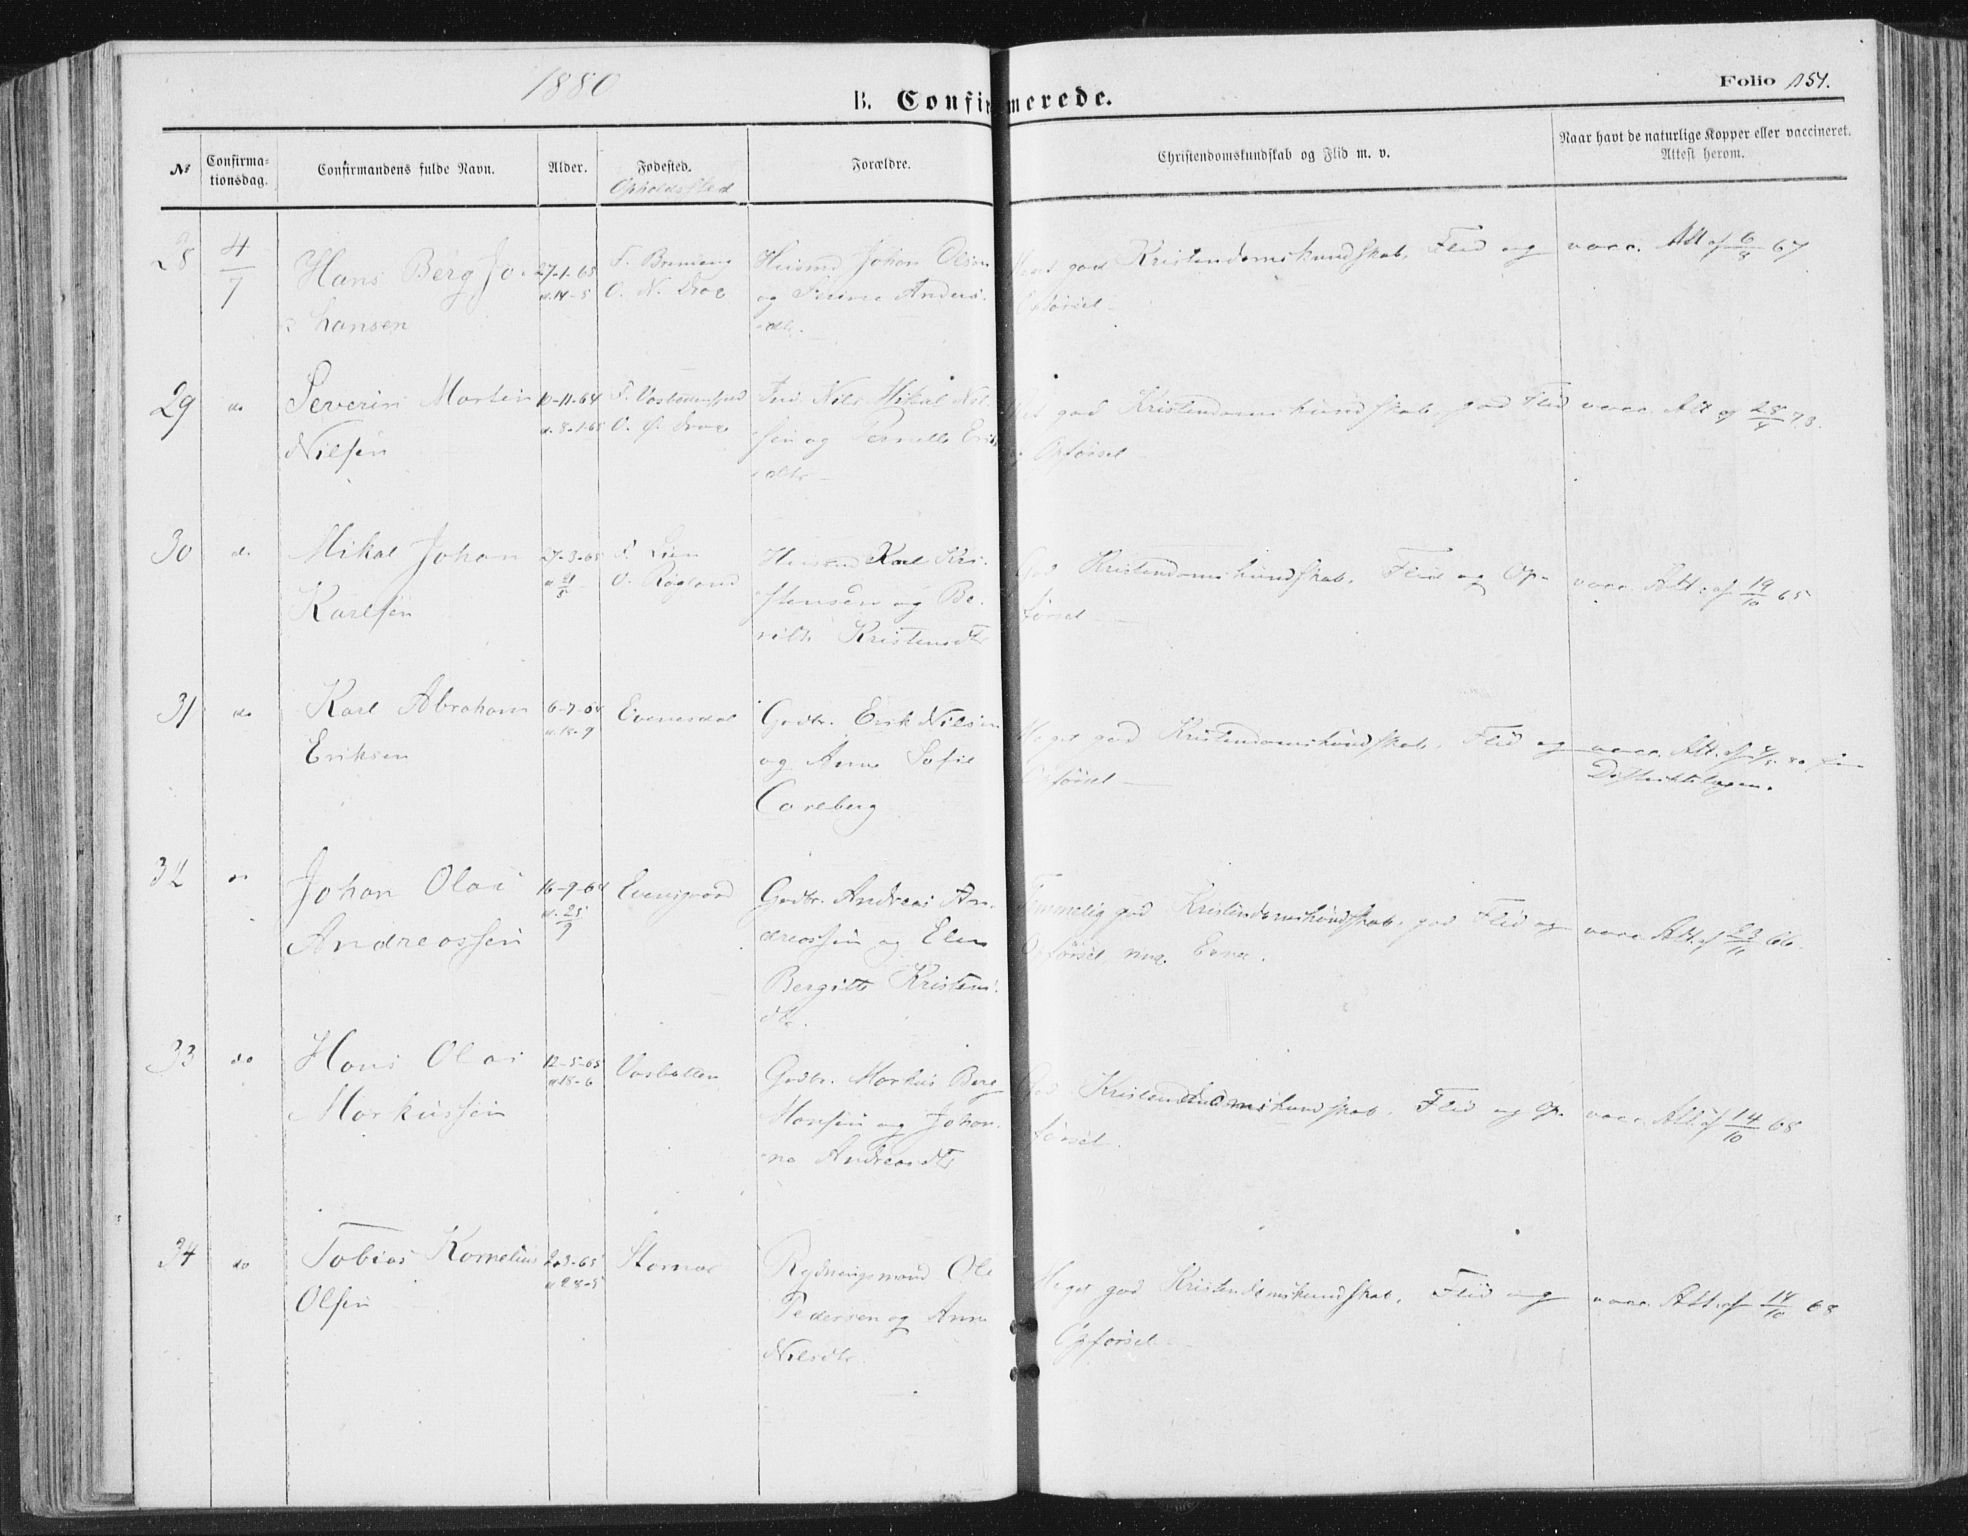 1880
B. Confirmerede.
Folio 151.
№
Confirma-
tionsdag.
Confirmandens fulde Navn.
Alder.
Fødested.
Opholdssted
Forældre.
Christendomskundskab og Flid m. v.
Naar havt de naturlige Kopper eller vaccineret.
Attest herom.
28
4/7
Hans Berg Jo-
hansen
27-1-65
d. 14-5
F.
O. N.
Husmd Johan Olsen
og Anders-
dtr.
Meget god Kristendomskundskab, Flid og
Opførsel
vacc. Att af 6/8 67
29
do
Severin Martin
Nilsen
10-11-64
d. 8-1-65
F.
O.
Ind. Nils Mikal Nil-
sen og Pernille Eriks-
dtr
god Kristendomskundskab, god Flid
og Opførsel
vacc. Att af 73.
30
do
Mikal Johan
Karlsen
27-3-65
F. Lien
O.
Husmd Karl Kri-
stensen og Be-
rith Kristensdtr
God Kristendomskundskab, Flid og Op-
førsel
vacc. Att. af 19/10 65
31
do
Karl Abraham
Eriksen
6-7-64
d. 18-9
Evenesdal
Gadbr. Erik Nilsen
og Anna Sofie
Careberg
Meget god Kristendomskundskab, Flid og
Opførsel
vacc. Att. af 80 fra
Distriktslægen.
32
do
Johan Olai
Andreassen
16-9-64
d. 25/9
Evensgaard
Gadbr. Andreas An-
dreassen og Elen
Bergitte Kristens-
dtr.
Temmelig god Kristendomskundskab, god Flid og
Opførsel,
vacc. Att. af 23/10 66.
33
do
Hans Olai
Markussen
12-5-65
d. 18-6
Vasbotten
Gadbr. Markus Berg
Hansen og Johan-
na Andreasdtr
God Kristendomskundskab, Flid og Op-
førsel.
vacc. Att. af 14/10 68
34
do
Tobias Kornelius
Olsen
2-3-65
d. 28-5
Rydningsmand Ole
Pedersen og Anne
Nilsdtr.
Meget god Kristendomskundskab, Flid og
Opførsel
vacc. Att. af 14/10 68